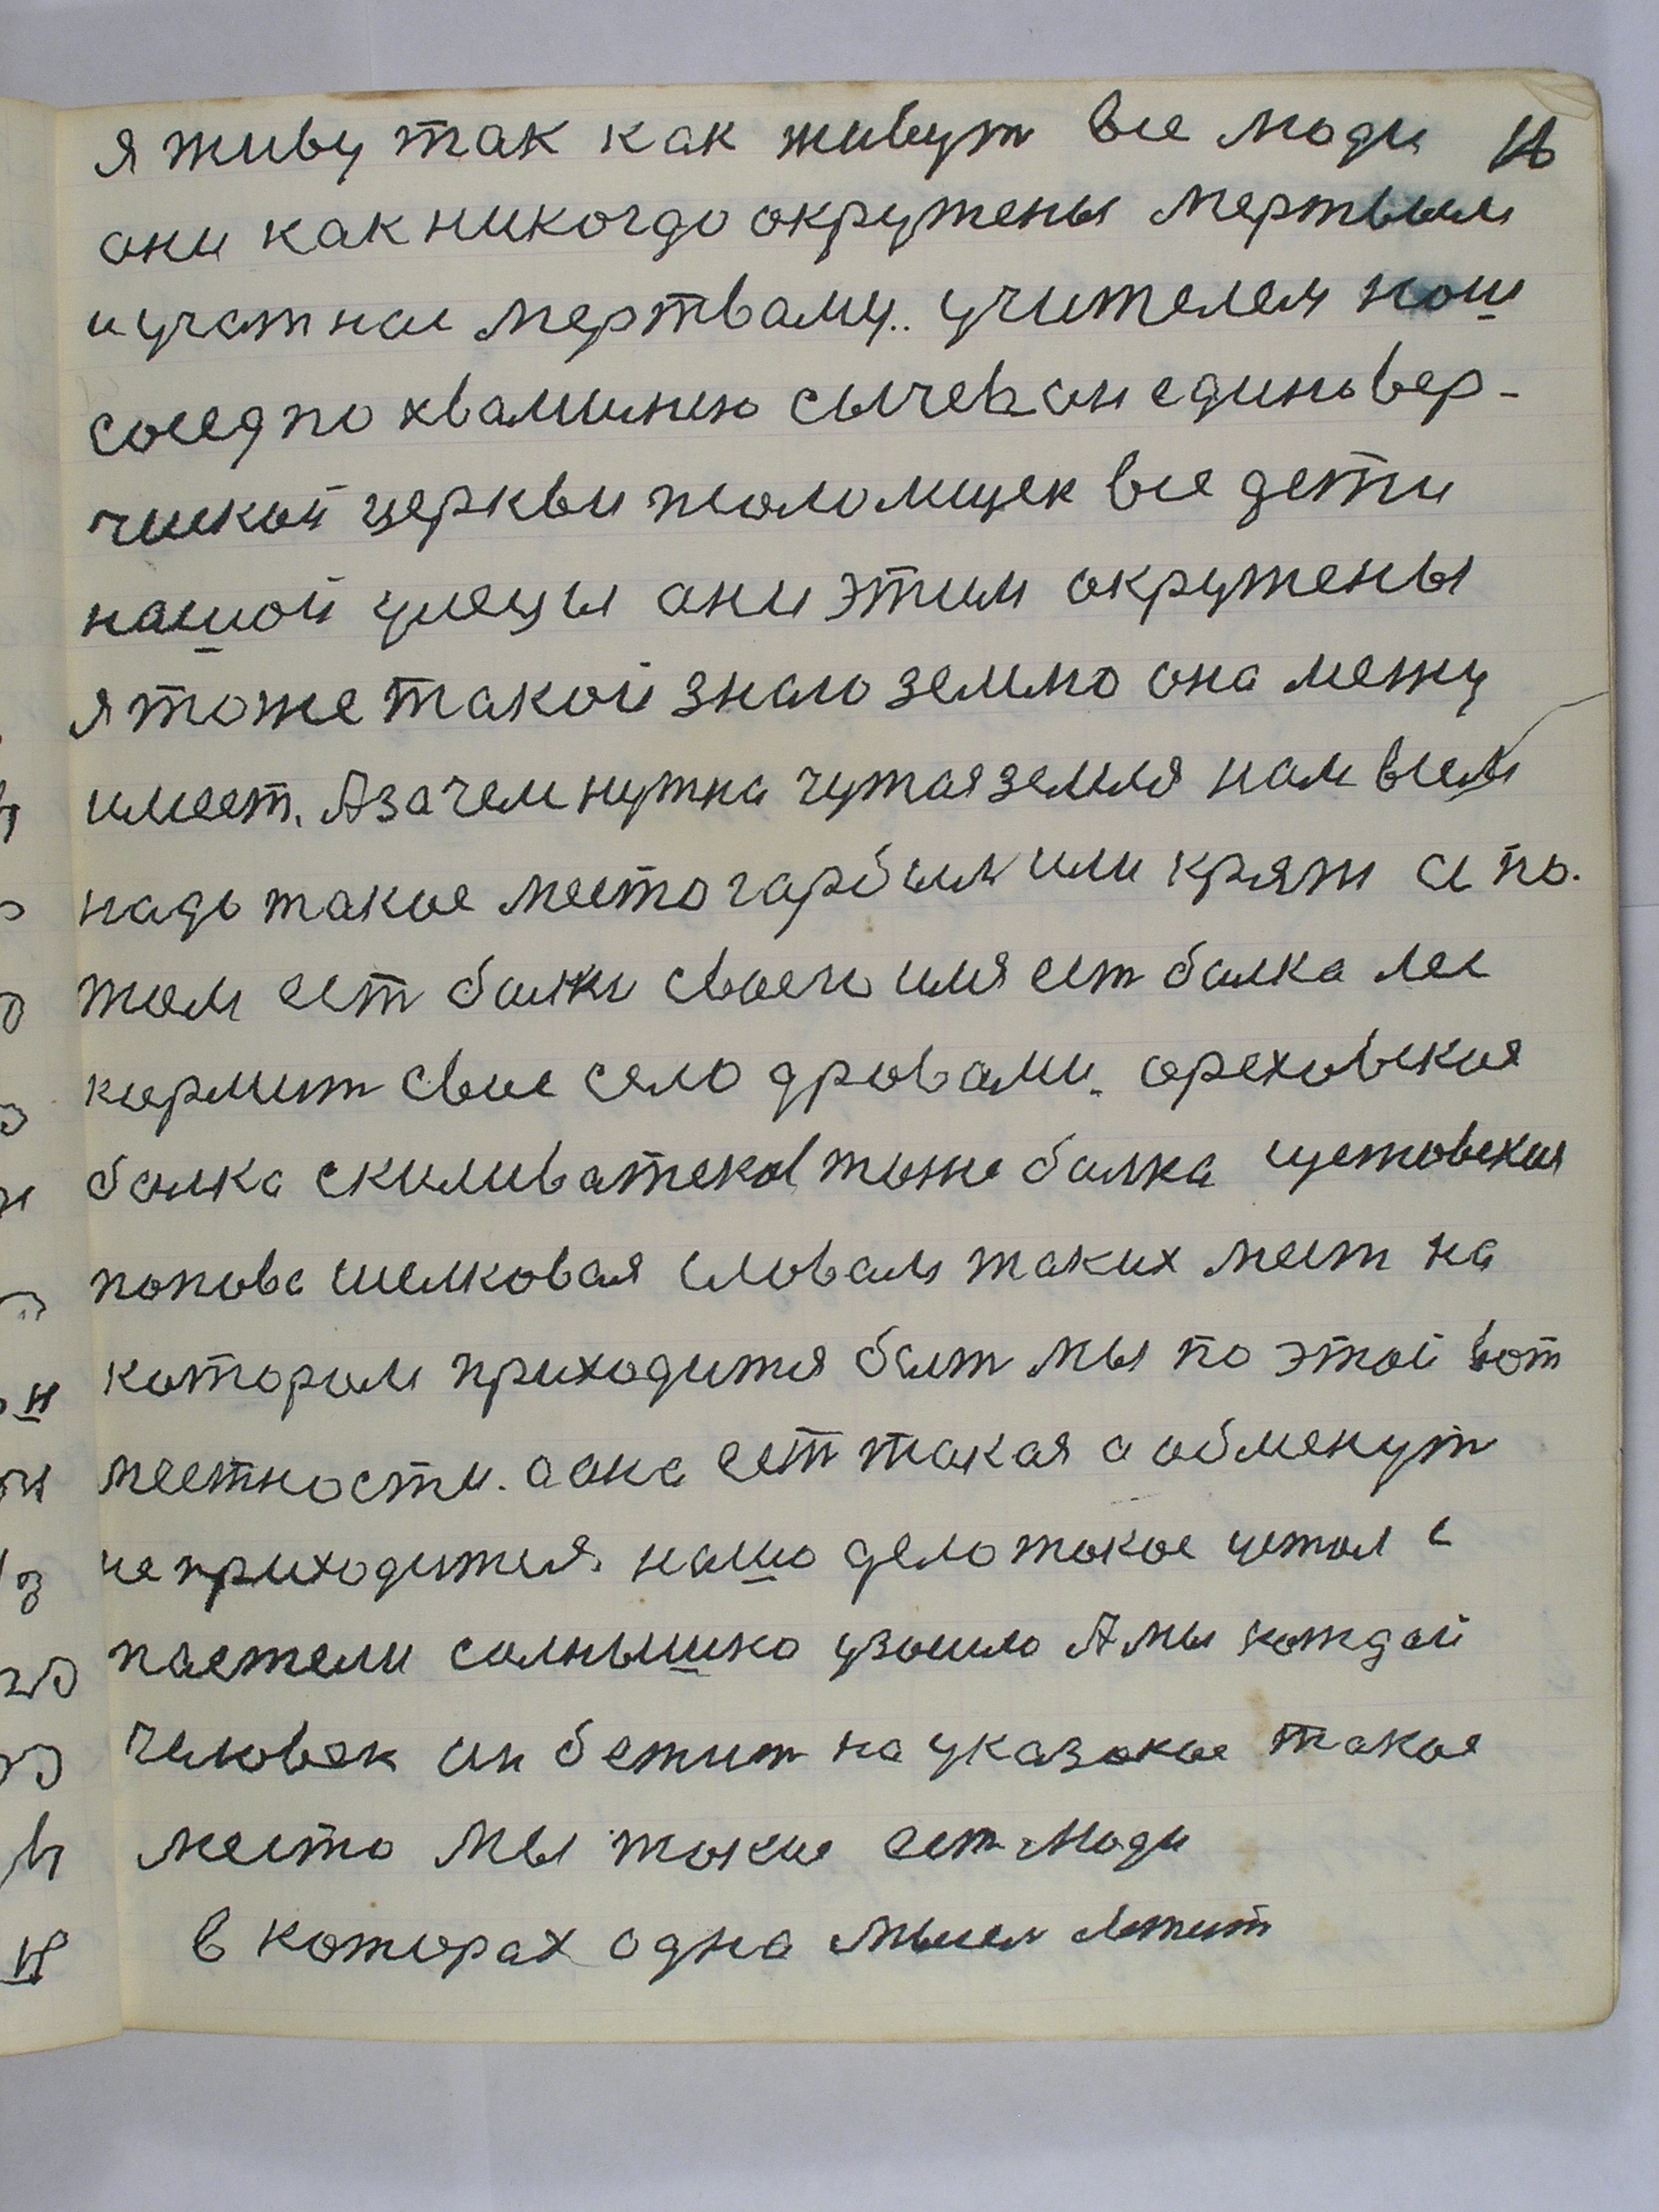 я живу так как живут все люди 16
ани как никогдо окружены мертвым
и учат нас мертваму.. учителем нош
сосед по хвамилию сычев он единовер-
чиской церкви псоломщек все дети
нашой улецы ани этим окружены
я тоже такой знаю землю она межу
имеет. А зачем нужна чужая земля нам всем
надо такое место гарбыль или кряж а по-
том ест балки своего имя ест балка лес
кормит свое село дровами. ореховская
балка скиливатская тоже балка щетовская
попова шелковая словам таких мест на
которым приходится быт мы по этой вот
местности. а она ест такая а обменут
не приходится. нашо дело такое устал с
пастели солнышко узошло А мы кождай
человек он бежит на указокое такое
место мы такие ест люди
в которах одна мысл лежит